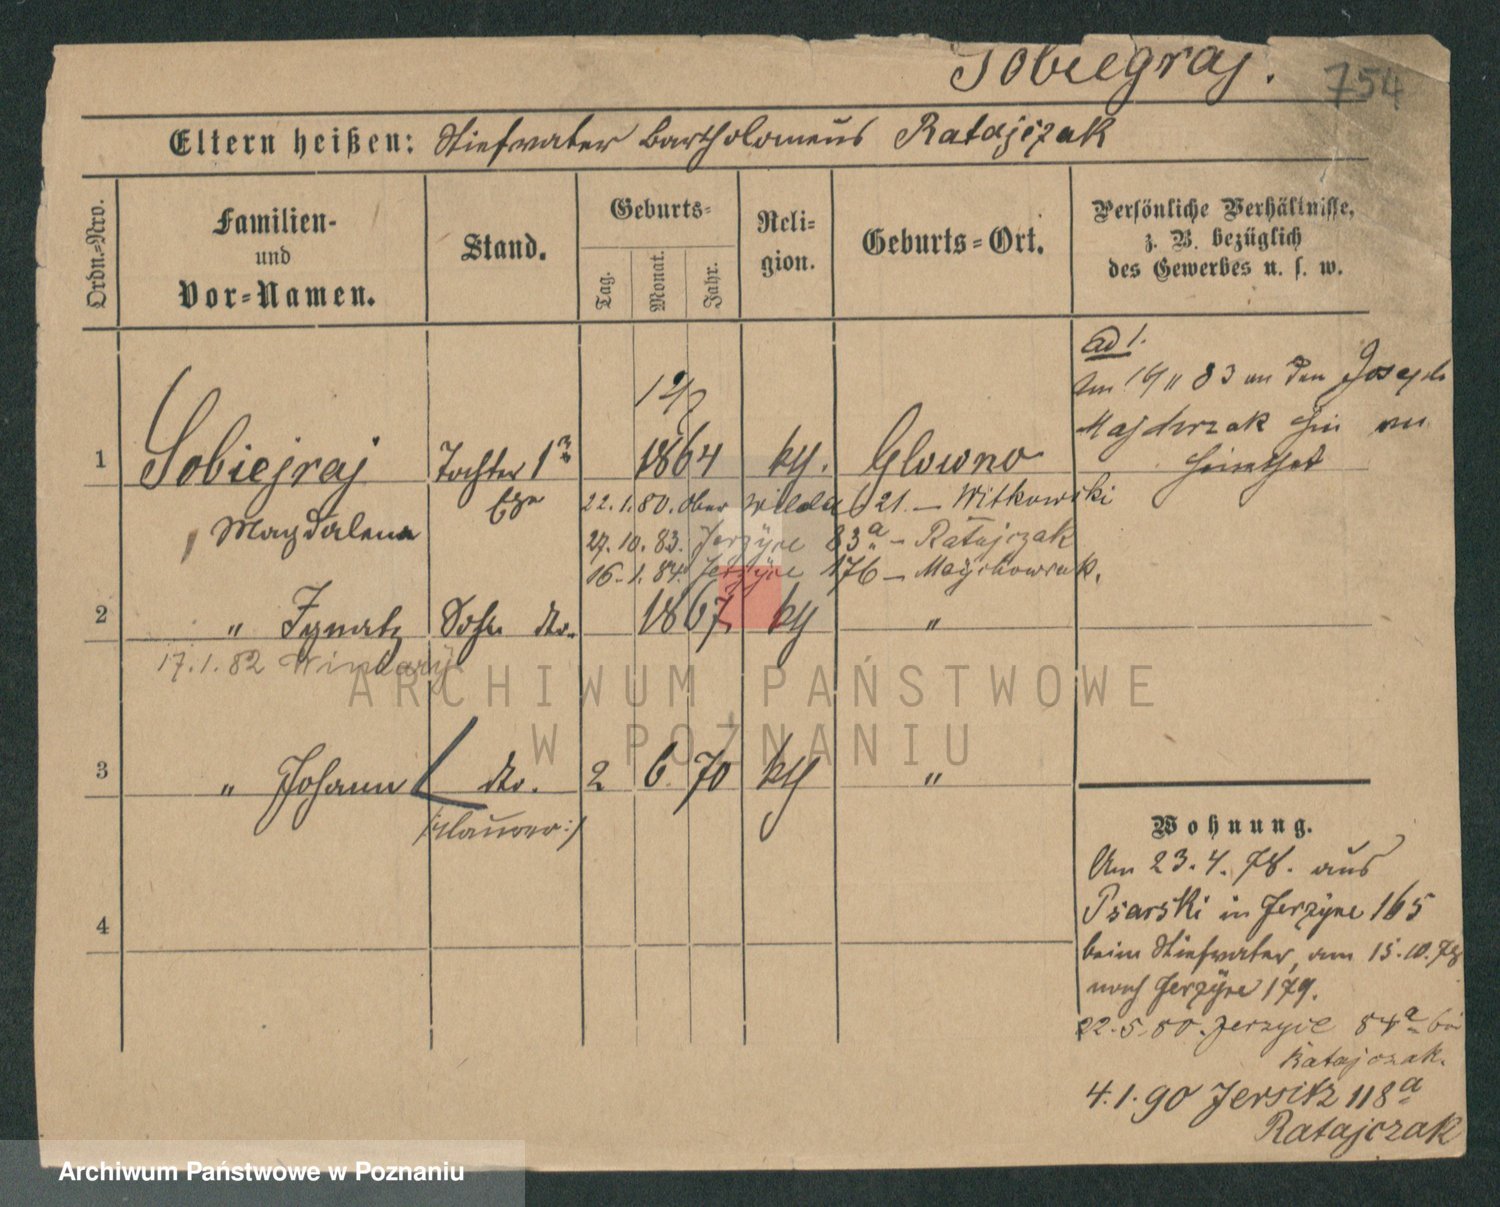 Sobiegraj. 754
Eltern heißen: Stiefvater Bartholomeus Ratajczak
Ordn.-Nro.
Familien-
und
Vor-Namen.
Stand.
Geburts-
Tag.
Monat.
Jahr.
Reli-
gion.
Geburts-Ort.
Persönliche Verhältnisse,
z. B. bezüglich
des Gewerbes u. s. w.
ad 1.
Am 83 an den Joseph
verheirathet
1 Sobiejraj Tochter 1r 1864 kth. Glowno
Magdalena Ehe
22.1.80. Ober Wilda 21. – Witkowski
27.10.83. Jerzyce 83a – Ratajczak
16.1.84. Jerzyce 176 –
2 " Ignatz Sohn dto. 1867. kth "
17.1.82 Winiary
3 " Johann dto. 2 6. 70 kth "
4
Wohnung.
Am 23.4.78. aus
Psarski in Jerzyce 165
beim Stiefvater, am 15.10.78
nach Jerzyce 179.
22.5.80. Jerzyce 84a bei
Ratajczak.
4.1.90 Jersitz 118a
Ratajczak
ARCHIWUM PAŃSTWOWE
W POZNANIU
Archiwum Państwowe w Poznaniu